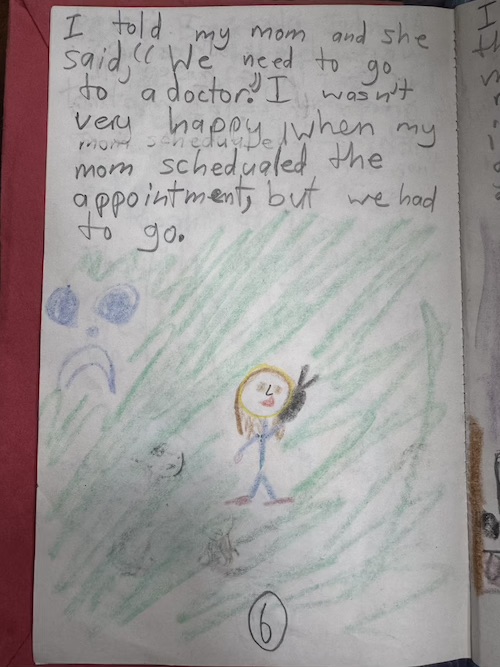 I told my mom and she
said, "We need to go
to a doctor." I wasn't
very happy when my
mom schedualed the
appointment, but we had
to go.
6